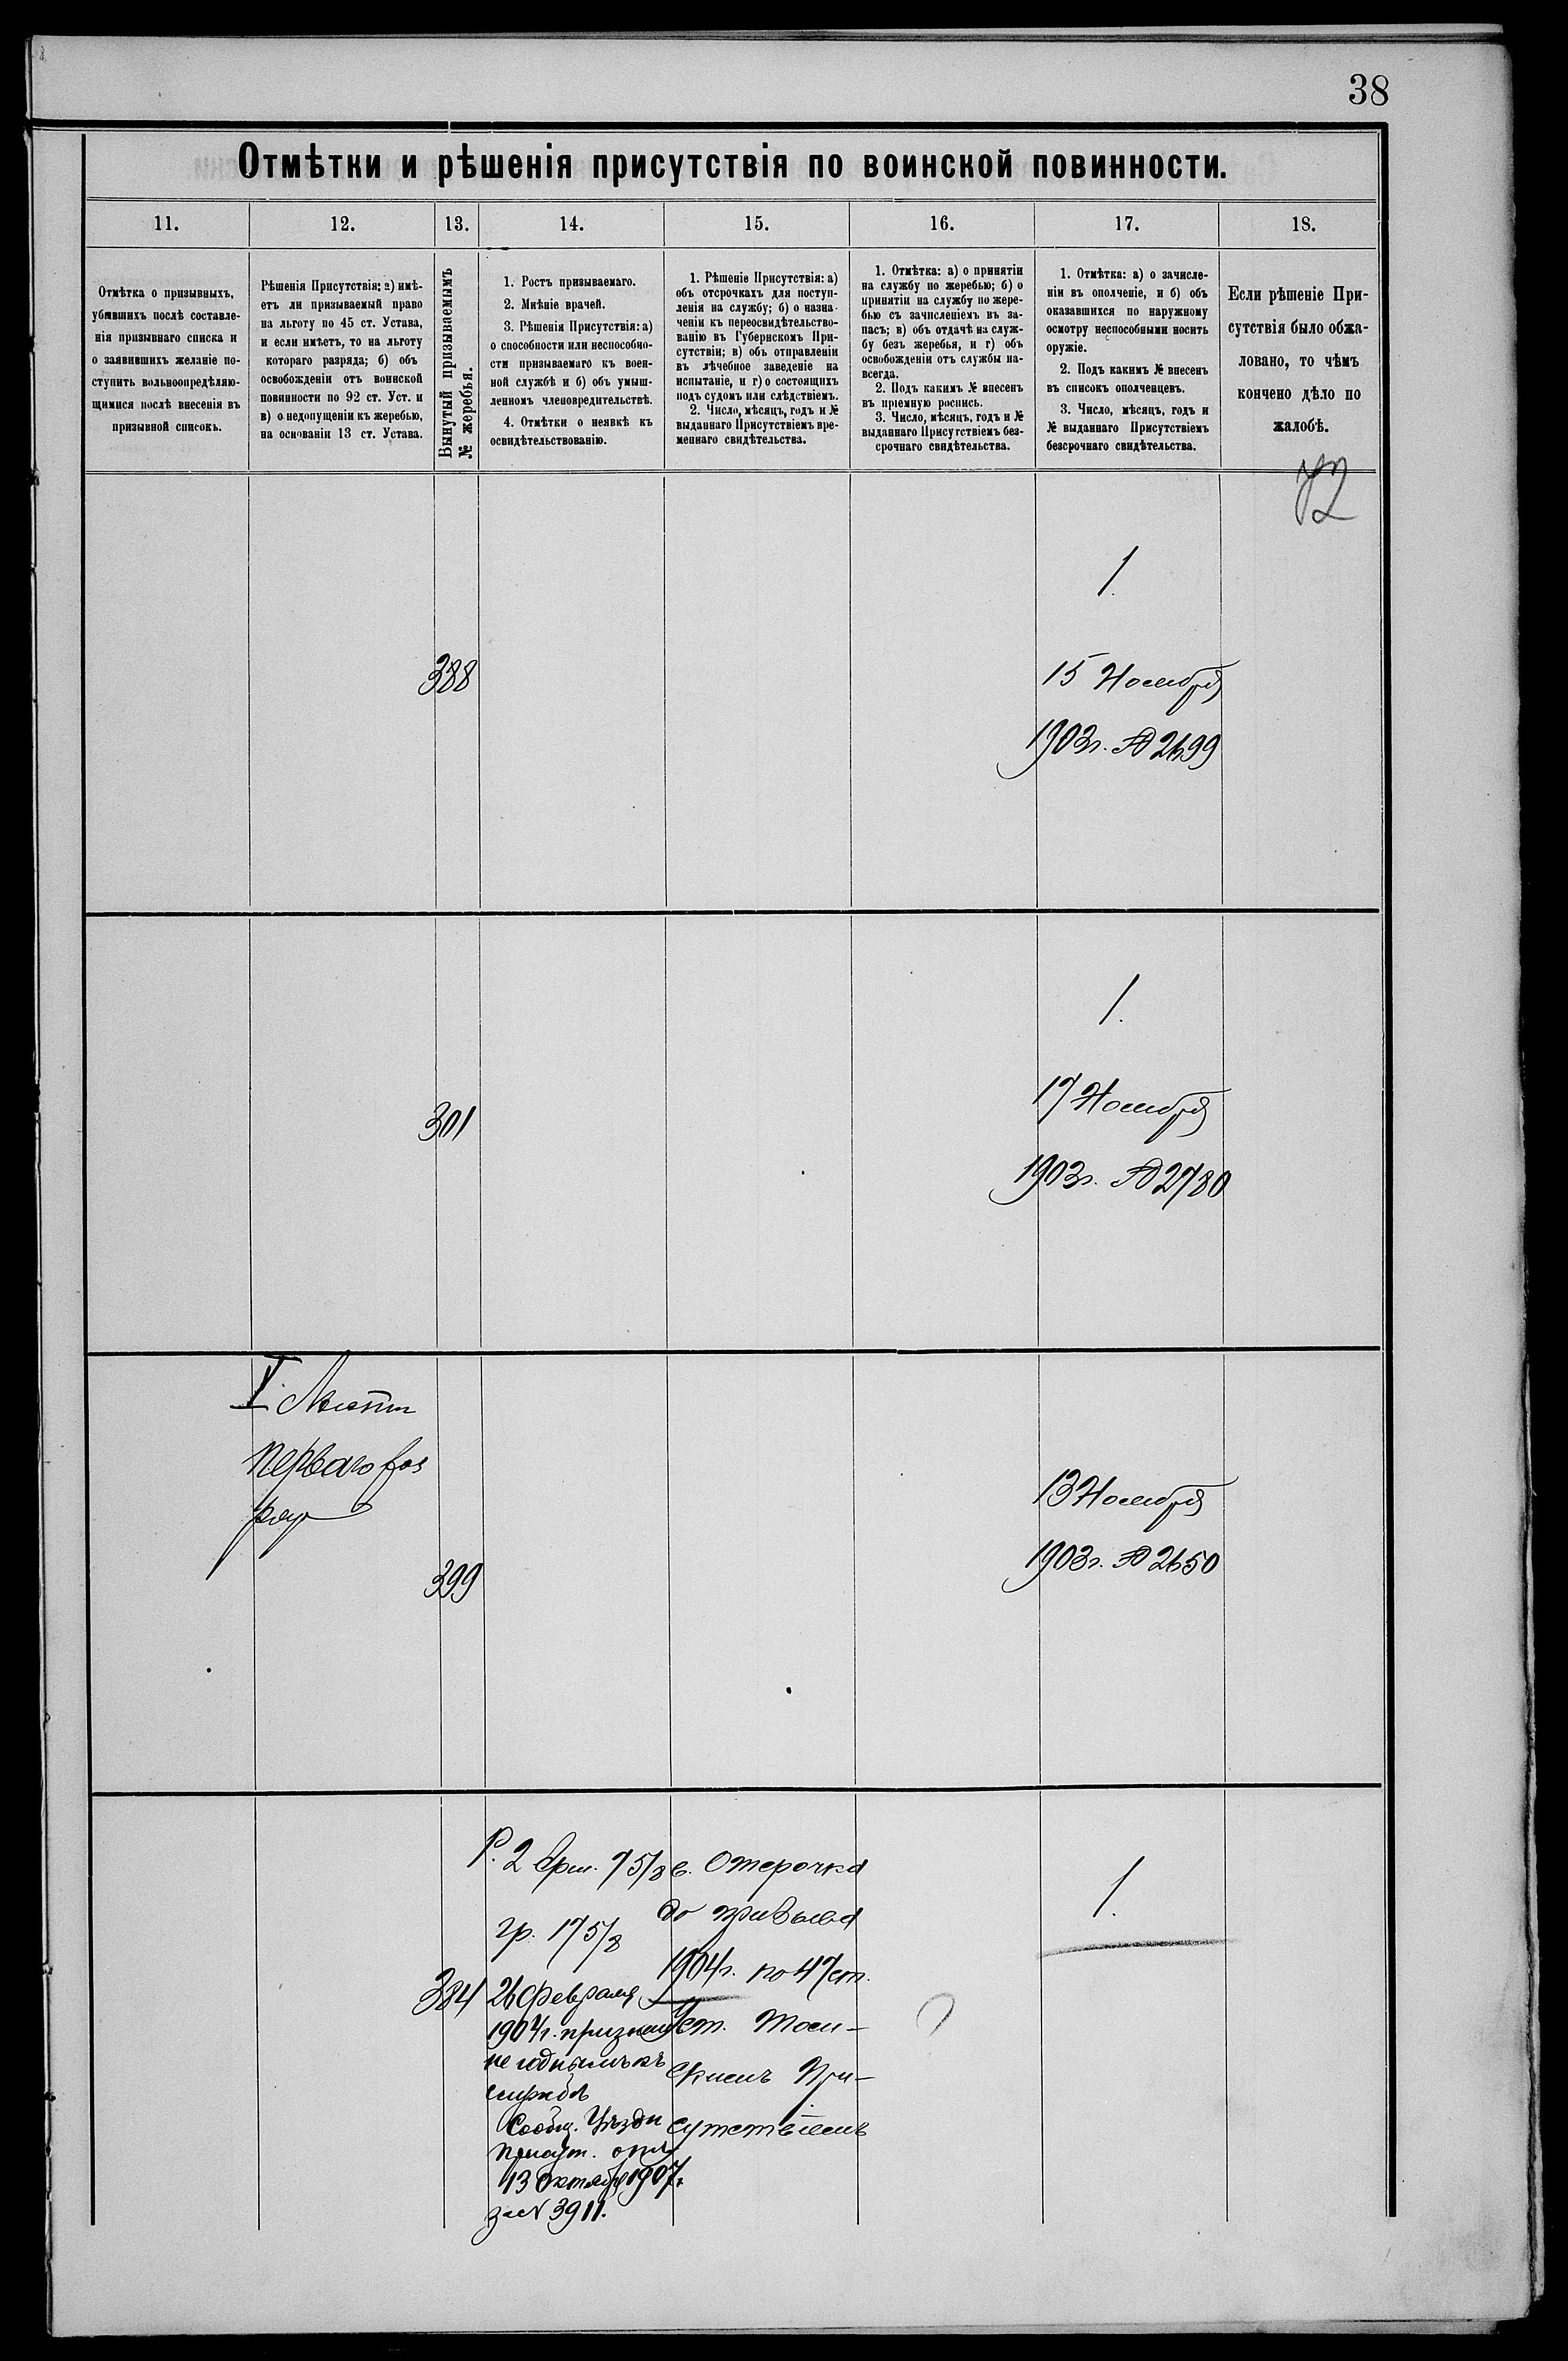 38
Отмѣтки и рѣшенія присутствія по воинской повинности.
11. 12. 13. 14. 15. 16. 17. 18.
Отмѣтка о призывныхъ,
убывшихъ послѣ составле-
нія призывнаго списка и
о заявившихъ желаніе по-
ступить вольноопредѣляю-
щимися послѣ внесенія въ
призывной списокъ.
Рѣшенія Присутствія: а) имѣ-
етъ ли призываемый право
на льготу по 45 ст. Устава,
и если имѣетъ, то на льготу
котораго разряда; б) объ
освобожденіи отъ воинской
повинности по 92 ст. Уст. и
в) о недопущеніи къ жеребью,
на основаніи 13 ст. Устава.
Вынутый призываемымъ
№ жеребья.
1. Ростъ призываемаго.
2. Мнѣніе врачей.
3. Рѣшенія Присутствія: а)
о способности или неспособно-
сти призываемаго къ воен-
ной службѣ и б) объ умыш-
ленномъ членовредительствѣ.
4. Отмѣтки о неявкѣ къ
освидѣтельствованію.
1. Рѣшеніе Присутствія: а)
объ отсрочкахъ для поступ-
ленія на службу; б) о назна-
ченіи къ переосвидѣтельство-
ванію въ Губернскомъ При-
сутствіи; в) объ отправленіи
въ лѣчебное заведеніе на
испытаніе, и г) о состоящихъ
подъ судомъ или слѣдствіемъ.
2. Число, мѣсяцъ, годъ и №
выданнаго Присутствіемъ вре-
меннаго свидѣтельства.
1. Отмѣтка: а) о принятіи
на службу по жеребью; б) о
принятіи на службу по жере-
бью съ зачисленіемъ въ за-
пасъ; в) объ отдачѣ на служ-
бу безъ жеребья, и г) объ
освобожденіи отъ службы на-
всегда.
2. Подъ какимъ № внесенъ
въ пріемную роспись.
3. Число, мѣсяцъ, годъ и №
выданнаго Присутствіемъ без-
срочнаго свидѣтельства.
1. Отмѣтка: а) о зачисле-
ніи въ ополченіе, и б) объ
оказавшихся по наружному
осмотру неспособными носить
оружіе.
2. Подъ какимъ № внесенъ
въ списокъ ополченцевъ.
3. Число, мѣсяцъ, годъ и
№ выданнаго Присутствіемъ
безсрочнаго свидѣтельства.
Если рѣшеніе При-
сутствія было обжа-
ловано, то чѣмъ
кончено дѣло по
жалобѣ.
1.
388
15 Ноября
1903г. № 2699
1.
301
17 Ноября
1903г. № 2780
перваго раз
ряда
399
13 Ноября
1903г. № 2650
384
Р. 2 арш. 7 5/8 в.
гр. 17 5/8
26 Февраля
1904г. признанъ
не годнымъ къ
службѣ
Сообщ. Уѣздн
Присут. отъ
13 Октября 1907г.
за № 3911.
Отсрочка
до призыва
1904г. по 47 ст.
Уст.
скимъ При-
сутствіемъ
1.